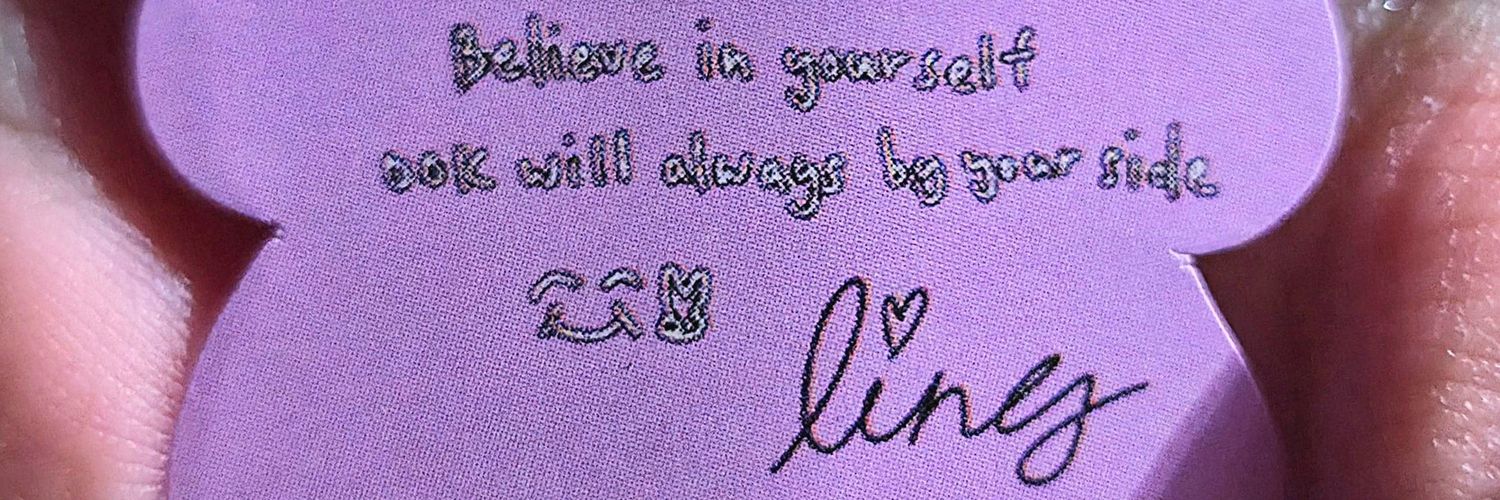 Believe in yourself
ook will always by your side
ling